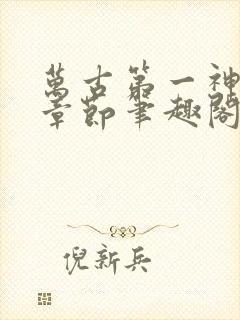 萬古第一神
章節筆趣閣
倪新兵